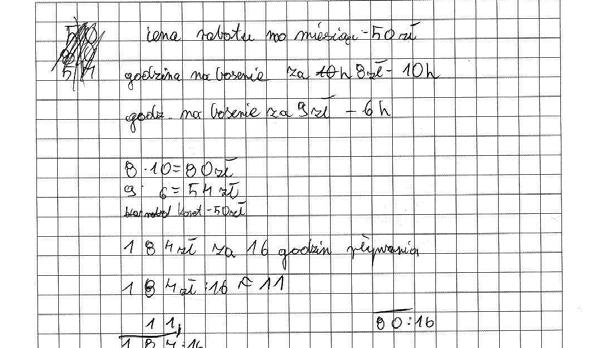 cena rabatu na miesiąc - 50 zł
godzina na basenie za 10h 8zł - 10h
godz. na basenie za 9 zł - 6h
8 · 10 = 80 zł
9 · 6 = 54 zł
koszt - 50 zł
184 zł za 16 godzin pływania
184 zł : 16 ≈ 11
11,
80 : 16
184 : 16